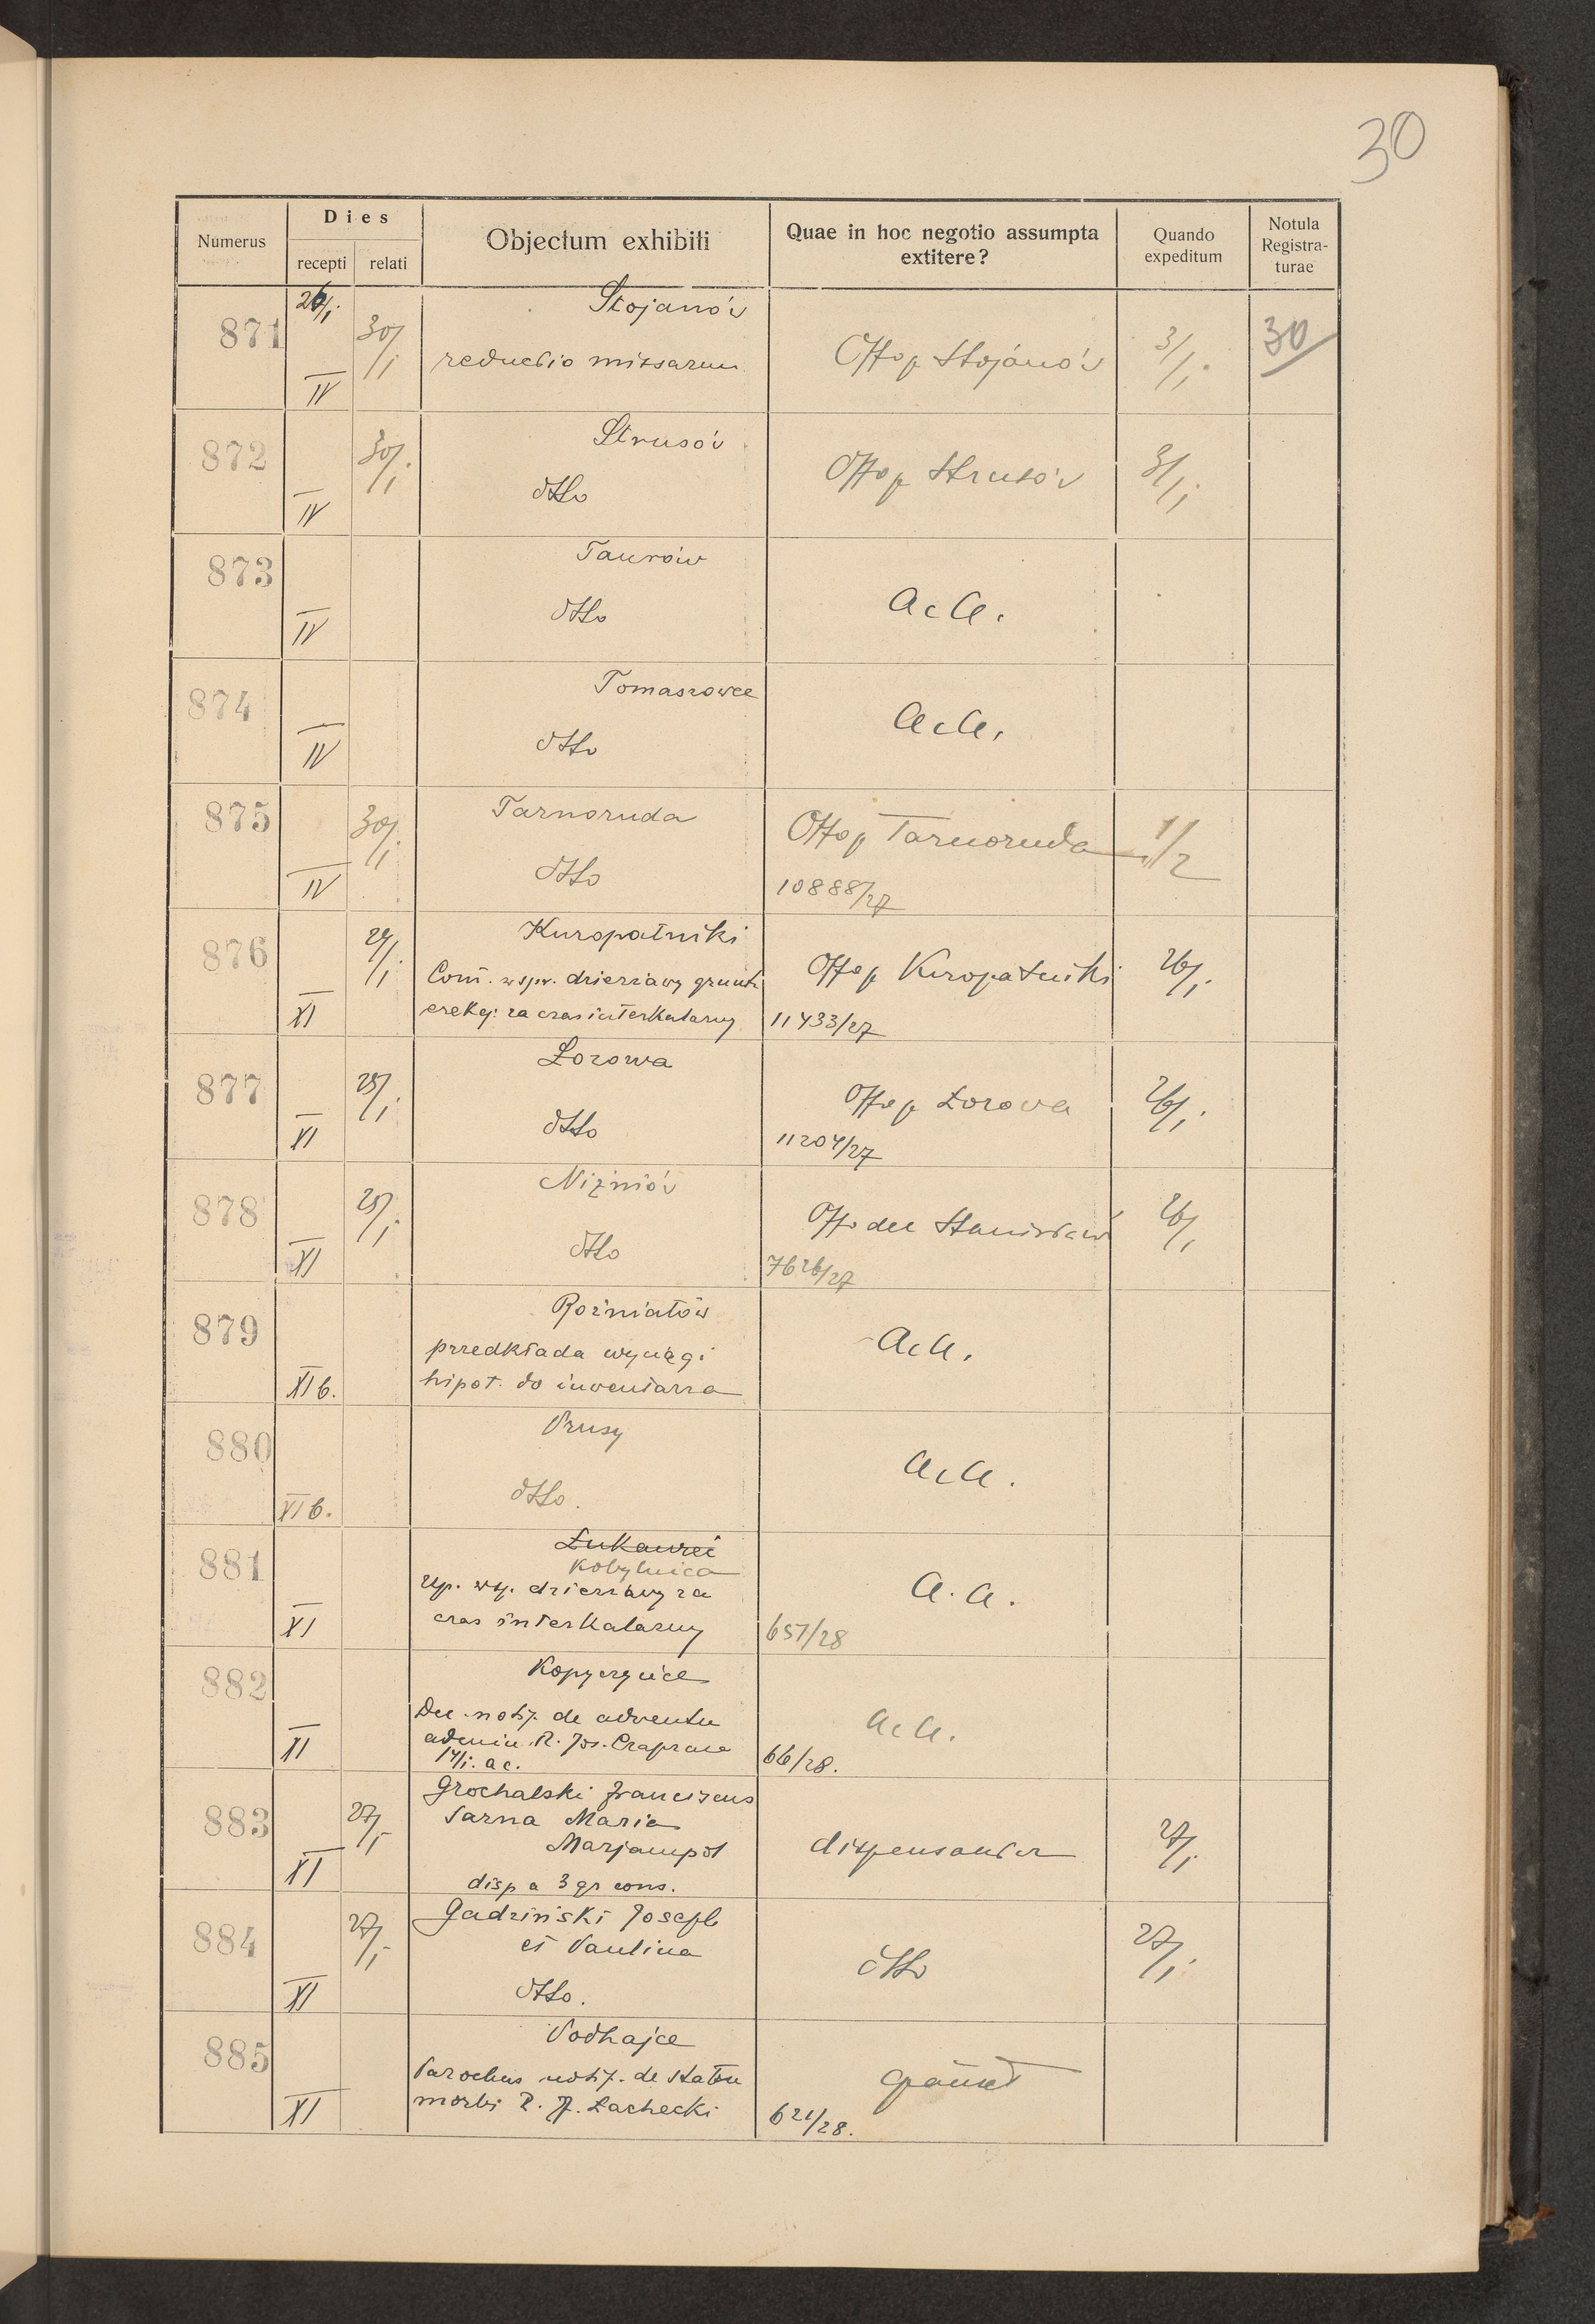 30
Numerus
Dies
recepti relati
Objectum exhibiti
Quae in hoc negotio assumpta
extitere?
Quando
expeditum
Notula
Registra-
turae
871 26/I IV 30/I
Stojanów
reductio missarum
Off p Stojanów 3/I 30
872 IV 30/I
Strusów
dtto
Off p Strusów 3/I
873 IV
Taurów
dtto
AcA.
874 IV
Tomaszowce
dtto
AcA.
875 IV 30/I
Tarnoruda
dtto
Off p Tarnoruda 1/2
10888/27
876 XI 24/I
Kuropatniki
Com. w spr. dzierżawy gruntu
erekcj. za czas interkalarny
Off p Kuropatniki 26/I
11433/27
877 XI 25/I
Łozowa
dtto
Off p Łozowa 26/I
11204/27
878 XI 25/I
Niżniów
dtto
Off dec Stanisław 26/I
7626/27
879 XI b.
Rożniatów
przedkłada wyciągi
hipot. do inwentarza
AcA.
880 XI b.
Prusy
dtto.
AcA.
881 XI
Kobylnica
czas interkalarny
a.a.
657/28
882 XI
Kopyczyńce
Dec. notif. de adventu
17/I. a c.
AcA.
66/28.
883 XI 27/I
Grochalski Franciscus
Sarna Maria
Marjampol
disp a 3 gr cons.
dispensantur 27/I
884 XI 27/I
Gadziński Joseph
et Paulina
dtto.
dtto 27/I
885 XI
Podhajce
Parochus notif. de statu
morbi R. J. Łachecki
621/28.